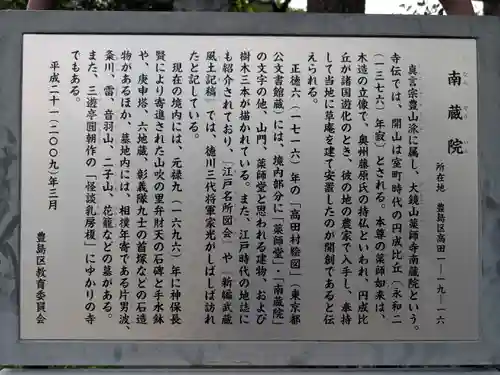 南蔵院
なん ぞう いん
所在地　豊島区高田一―一九―一六
真言宗豊山派に属し、大鏡山薬師寺南蔵院という。
寺伝では、開山は室町時代の円成比丘（永和二
（一三七六）年寂）とされる。本尊の薬師如来は、
木造の立像で、奥州藤原氏の持仏といわれ、円成比
丘が諸国遊化のとき、彼の地の農家で入手し、奉持
して当地に草庵を建て安置したのが開創であると伝
えられる。
正徳六（一七一六）年の「高田村絵図」（東京都
公文書館蔵）には、境内部分に「薬師堂」・「南蔵院」
の文字の他、山門、薬師堂と思われる建物、および
樹木三本が描かれている。また、江戸時代の地誌に
も紹介されており、『江戸名所図会』や『新編武蔵
風土記稿』では、徳川三代将軍家光がしばしば訪れ
たと記している。
現在の境内には、元禄九（一六九六）年に神保長
賢により寄進された山吹の里弁財天の石碑と手水鉢
や、庚申塔、六地蔵、彰義隊九士の首塚などの石造
物があるほか、墓地内には、相撲年寄である片男波、
粂川、雷、音羽山、二子山、花籠などの墓がある。
また、三遊亭圓朝作の「怪談乳房榎」にゆかりの寺
でもある。
平成二十一（二〇〇九）年三月
豊島区教育委員会